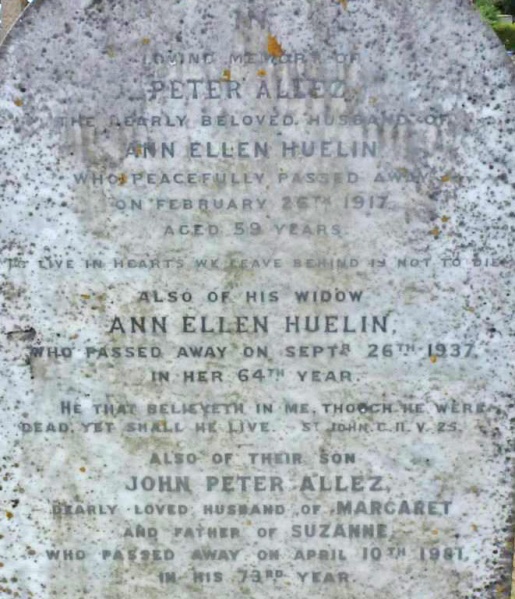 IN
LOVING MEMORY OF
PETER ALLEZ,
THE DEARLY BELOVED HUSBAND OF
ANN ELLEN HUELIN
WHO PEACEFULLY PASSED AWAY
ON FEBRUARY 26TH 1917.
AGED 59 YEARS
TO LIVE IN HEARTS WE LEAVE BEHIND IS NOT TO DIE
ALSO OF HIS WIDOW
ANN ELLEN HUELIN,
WHO PASSED AWAY ON SEPTR 26TH 1937,
IN HER 64TH YEAR.
HE THAT BELIEVETH IN ME, THOUGH HE WERE
DEAD, YET SHALL HE LIVE. ST JOHN. C. 11. V. 25.
ALSO OF THEIR SON
JOHN PETER ALLEZ,
DEARLY LOVED HUSBAND OF MARGARET
AND FATHER OF SUZANNE,
WHO PASSED AWAY ON APRIL 10TH 1981,
IN HIS 73RD YEAR.